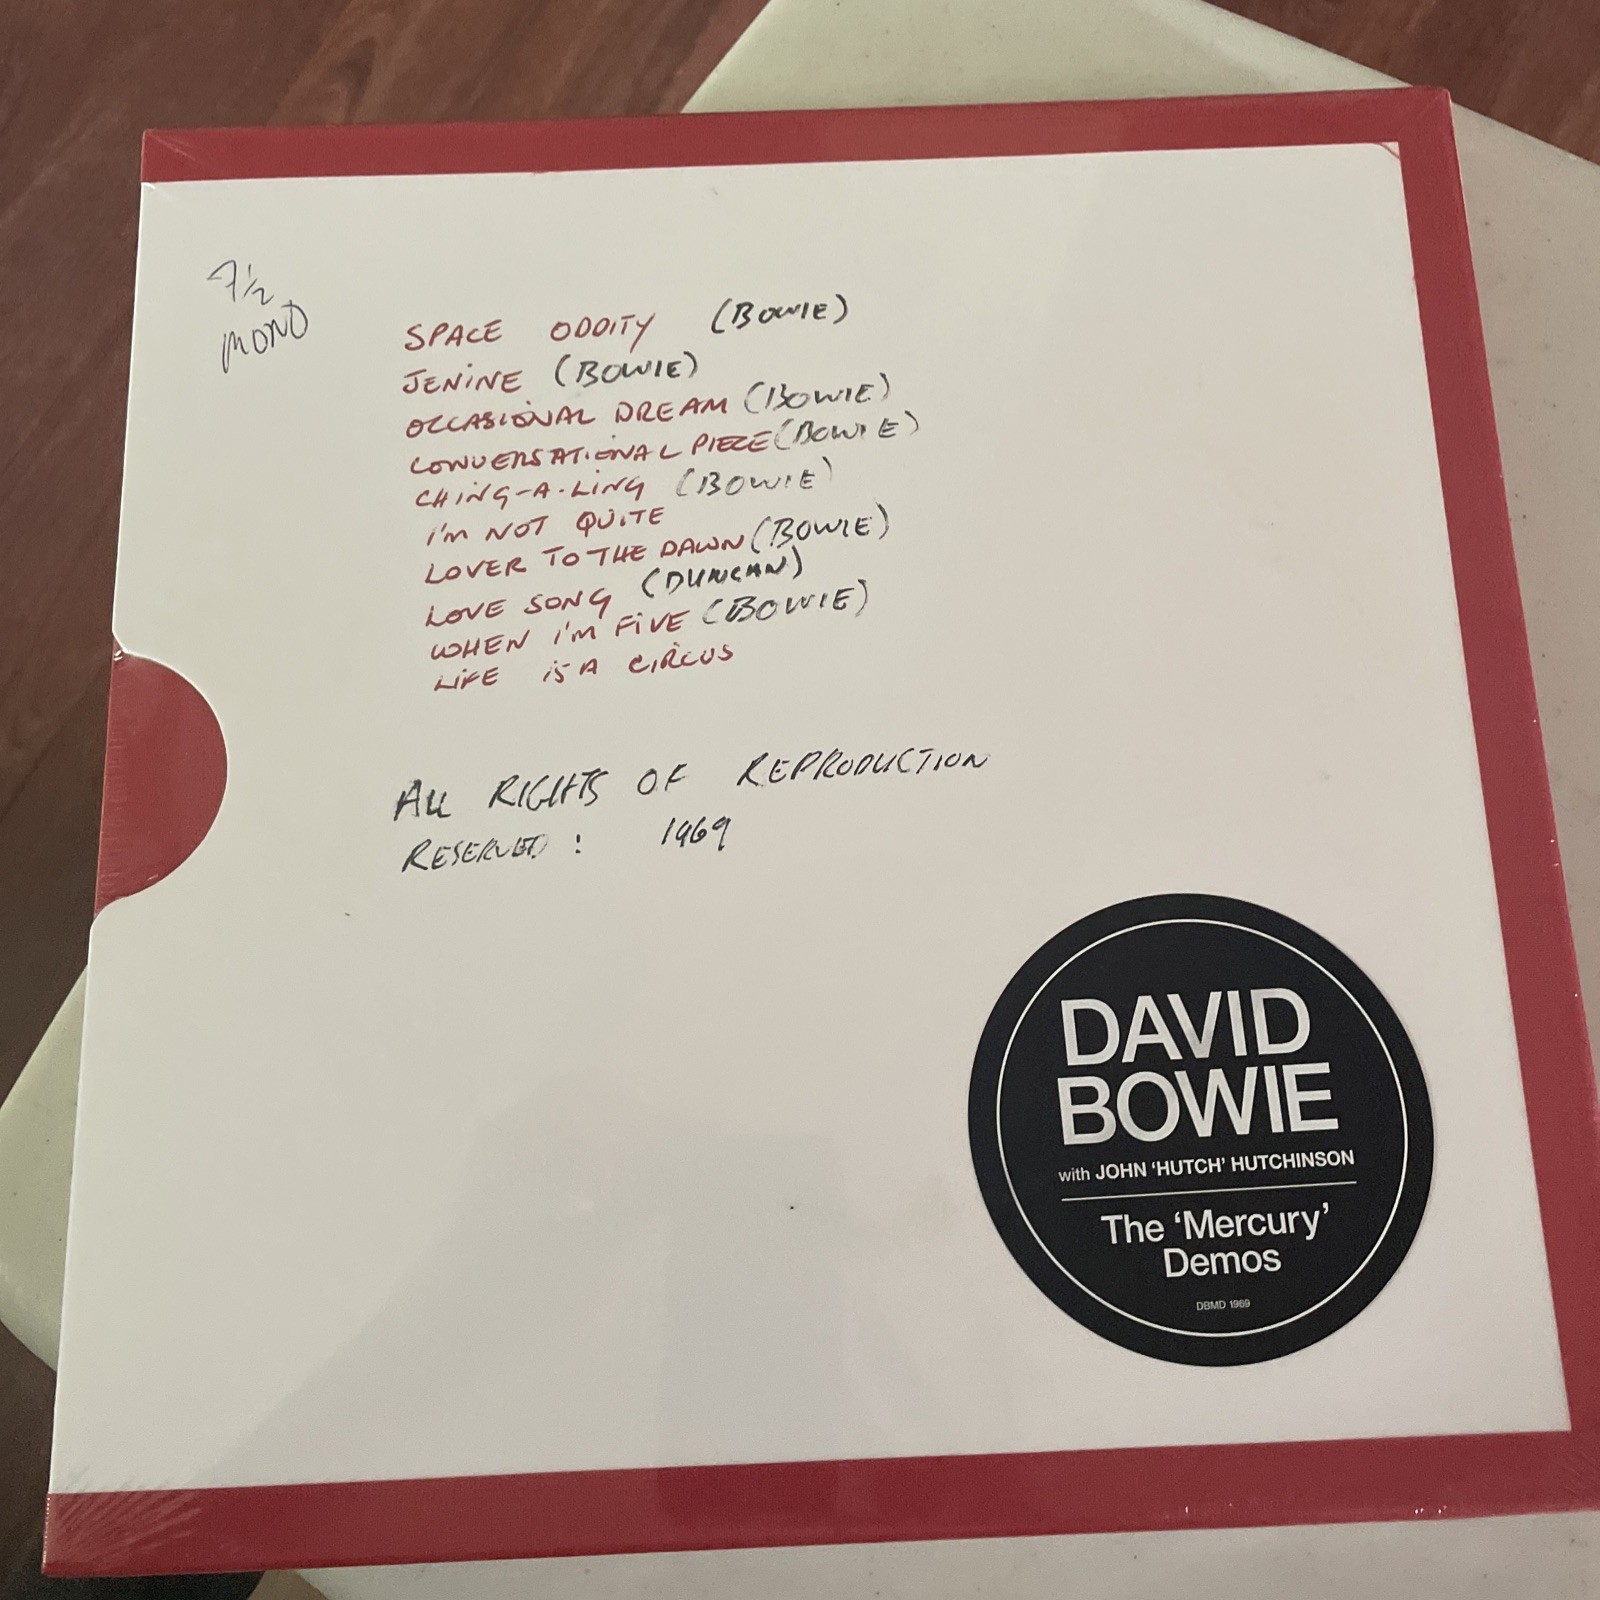 7½
MONO
SPACE ODDITY (BOWIE)
JENINE (BOWIE)
OCCASIONAL DREAM (BOWIE)
CONVERSATIONAL PIECE (BOWIE)
CHING-A-LING (BOWIE)
I'M NOT QUITE
LOVER TO THE DAWN (BOWIE)
LOVE SONG (DUNCAN)
WHEN I'M FIVE (BOWIE)
LIFE IS A CIRCUS
ALL RIGHTS OF REPRODUCTION
RESERVED : 1969
DAVID
BOWIE
with JOHN ‘HUTCH’ HUTCHINSON
The ‘Mercury’
Demos
DBMD 1969